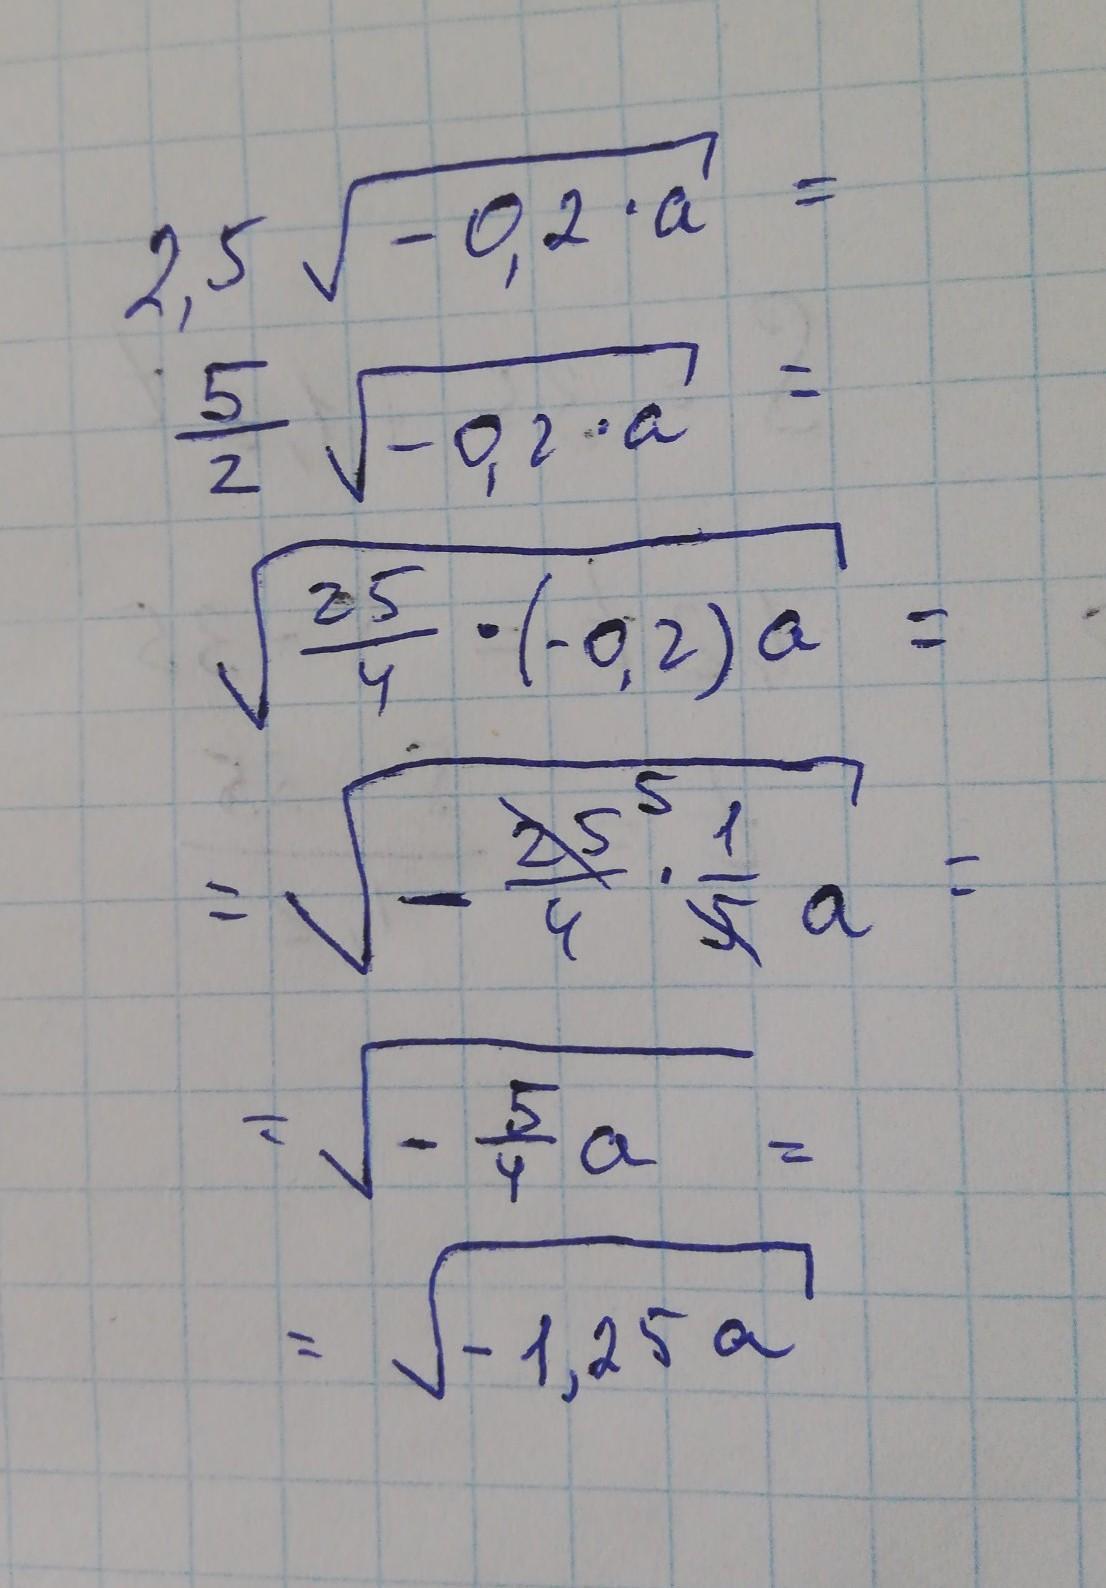 2,5 √(-0,2·a) =
5/2 √(-0,2·a) =
√(25/4 · (-0,2) a) =
= √(- 25/4 ⁵ · 1/5 a) =
= √(- 5/4 a) =
= √(-1,25 a)